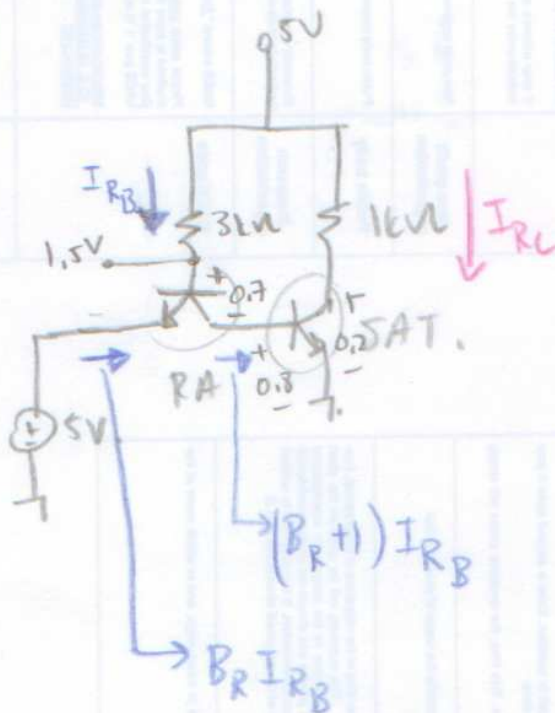 5V
I_RB
3kΩ
1kΩ
I_RC
1,5V
+
0.7
-
+
0.2
-
SAT.
RA
+
0.8
-
+
-
5V
(B_R+1) I_RB
B_R I_RB